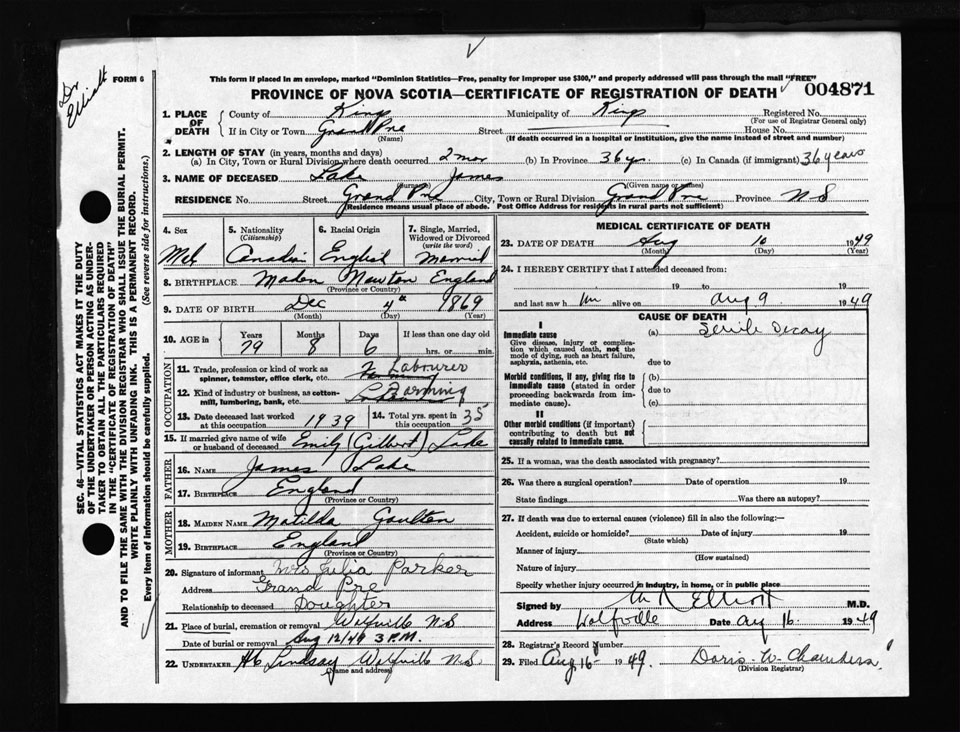 Dr Elliott
FORM 6
This form if placed in an envelope, marked "Dominion Statistics—Free, penalty for improper use $300," and properly addressed will pass through the mail "FREE"
PROVINCE OF NOVA SCOTIA—CERTIFICATE OF REGISTRATION OF DEATH 004871
SEC. 46—VITAL STATISTICS ACT MAKES IT THE DUTY
OF THE UNDERTAKER OR PERSON ACTING AS UNDER-
TAKER TO OBTAIN ALL THE PARTICULARS REQUIRED
IN THE "CERTIFICATE OF REGISTRATION OF DEATH"
AND TO FILE THE SAME WITH THE DIVISION REGISTRAR WHO SHALL ISSUE THE BURIAL PERMIT.
WRITE PLAINLY WITH UNFADING INK. THIS IS A PERMANENT RECORD.
Every item of information should be carefully supplied. (See reverse side for instructions.)
1. PLACE OF DEATH
County of Kings Municipality of Kings Registered No.
(For use of Registrar General only)
If in City or Town Grand Pre Street House No.
(Name) (If death occurred in a hospital or institution, give the name instead of street and number)
2. LENGTH OF STAY (in years, months and days)
(a) In City, Town or Rural Division where death occurred 2 mos (b) In Province 36 yrs. (c) In Canada (if immigrant) 36 years
3. NAME OF DECEASED Lake James
(Surname) (Given name or names)
RESIDENCE No. Street Grand Pre City, Town or Rural Division Grand Pre Province N S
(Residence means usual place of abode. Post Office Address for residents in rural parts not sufficient)
4. Sex 5. Nationality (Citizenship) 6. Racial Origin 7. Single, Married, Widowed or Divorced (write the word)
Mal Canadian English Married
8. BIRTHPLACE Newton England
(Province or Country)
9. DATE OF BIRTH Dec 4th 1869
(Month) (Day) (Year)
10. AGE in Years Months Days If less than one day old
79 8 6 hrs. or min.
OCCUPATION
11. Trade, profession or kind of work as spinner, teamster, office clerk, etc. Labourer
12. Kind of industry or business, as cotton-mill, lumbering, bank, etc. Farming
13. Date deceased last worked at this occupation 1939 14. Total yrs. spent in this occupation 35
15. If married give name of wife or husband of deceased Emily (Gilbert) Lake
FATHER
16. NAME James Lake
17. BIRTHPLACE England
(Province or Country)
MOTHER
18. MAIDEN NAME Matilda Goulten
19. BIRTHPLACE England
(Province or Country)
20. Signature of informant Mrs Julia Parker
Address Grand Pre
Relationship to deceased Daughter
21. Place of burial, cremation or removal Wolfville N-S
Date of burial or removal Aug 12/49 3 P.M.
22. UNDERTAKER H C Lindsay Wolfville N.S
(Name and address)
MEDICAL CERTIFICATE OF DEATH
23. DATE OF DEATH Aug 10 1949
(Month) (Day) (Year)
24. I HEREBY CERTIFY that I attended deceased from:
19 to 19
and last saw h im alive on Aug 9 1949
CAUSE OF DEATH
I
Immediate cause (a) Senile Decay
Give disease, injury or complica-
tion which caused death, not the
mode of dying, such as heart failure,
asphyxia, asthenia, etc. due to
Morbid conditions, if any, giving rise to (b)
immediate cause (stated in order due to
proceeding backwards from im-
mediate cause). (c)
II
Other morbid conditions (if important)
contributing to death but not
causally related to immediate cause.
25. If a woman, was the death associated with pregnancy?
26. Was there a surgical operation? Date of operation 19
State findings Was there an autopsy?
27. If death was due to external causes (violence) fill in also the following:—
Accident, suicide or homicide? Date of injury 19
(State which)
Manner of injury
(How sustained)
Nature of injury
Specify whether injury occurred in industry, in home, or in public place
Signed by M R Elliott M.D.
Address Wolfville Date Aug 16 1949
28. Registrar's Record Number
29. Filed Aug 16 1949. Doris W Chambers
(Division Registrar)